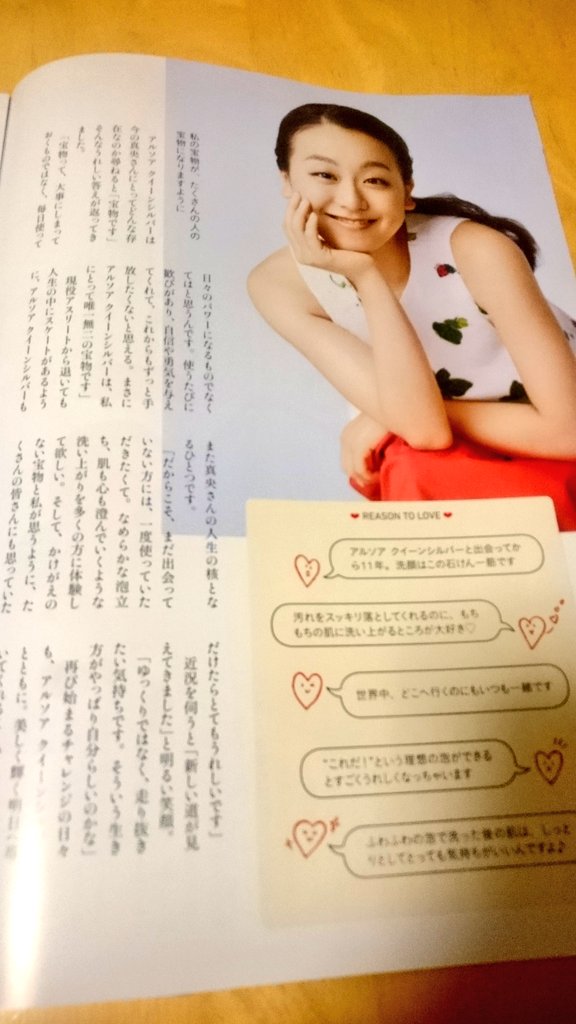 私の宝物が、たくさんの人の
宝物になりますように
アルソア クイーンシルバーは
今の真央さんにとってどんな存
在なのか尋ねると「宝物です」
そんなうれしい答えが返ってき
ました。
「宝物って、大事にしまって
おくものではなく、毎日使って
日々のパワーになるものでなく
てはと思うんです。使うたびに
歓びがあり、自信や勇気を与え
てくれて、これからもずっと手
放したくないと思える。まさに
アルソア クイーンシルバーは、私
にとって唯一無二の宝物です」
現役アスリートから退いても
人生の中にスケートがあるよう
に、アルソア クイーンシルバーも
また真央さんの人生の核とな
るひとつです。
「だからこそ、まだ出会って
いない方には、一度使っていた
だきたくて。なめらかな泡立
ち、肌も心も澄んでいくような
洗い上がりを多くの方に体験し
て欲しい。そして、かけがえの
ない宝物と私が思うように、た
くさんの皆さんにも思っていた
だけたらとてもうれしいです」
近況を伺うと「新しい道が見
えてきました」と明るい笑顔。
「ゆっくりではなく、走り抜き
たい気持ちです。そういう生き
方がやっぱり自分らしいのかな」
再び始まるチャレンジの日々
も、アルソア クイーン
とともに。美しく輝く明日へ
REASON TO LOVE
アルソア クイーンシルバーと出会ってか
ら11年。洗顔はこの石けん一筋です
汚れをスッキリ落としてくれるのに、もち
もちの肌に洗い上がるところが大好き♡
世界中、どこへ行くのにもいつも一緒です
“これだ!”という理想の泡ができる
とすごくうれしくなっちゃいます
ふわふわの泡で洗った後の肌は、しっと
りとしてとっても気持ちがいいんですよ♪